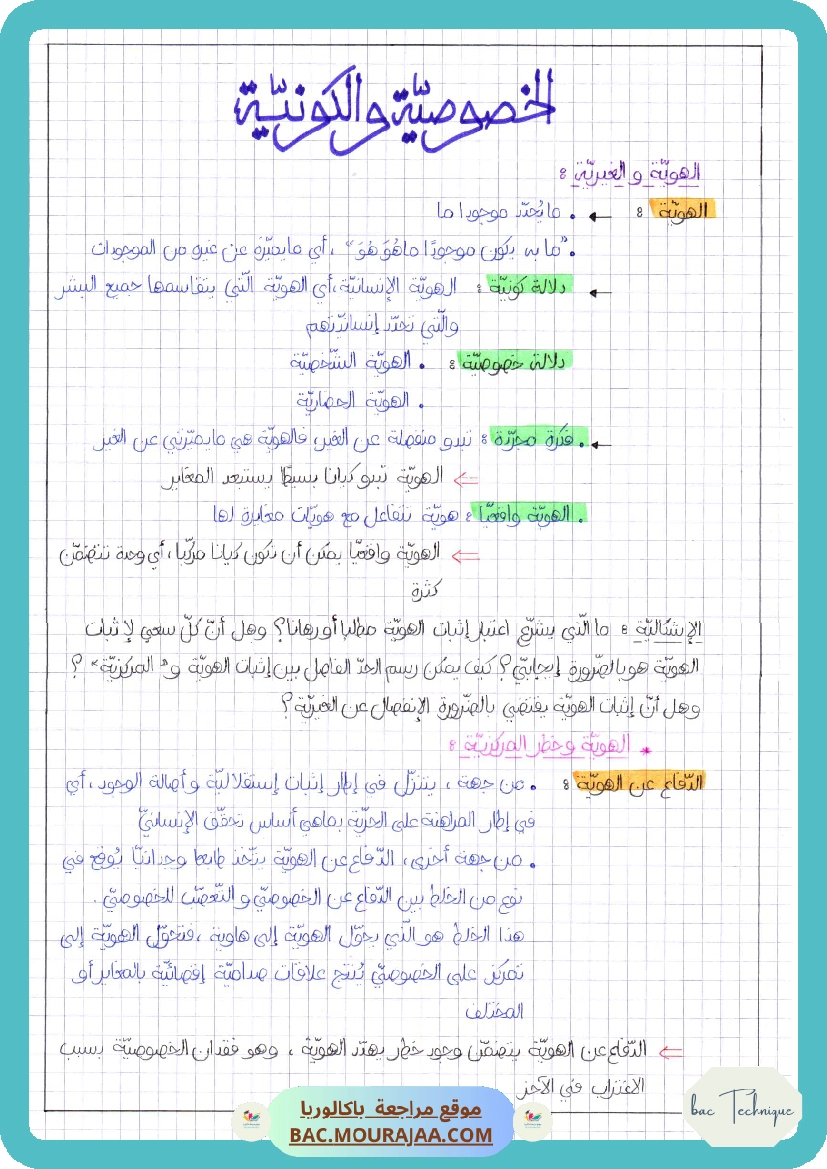 الخصوصيّة والكونيّة
الهويّة والغيريّة :
الهويّة : ← • ما يُحدّد موجودا ما
• "ما به يكون موجودًا ما هُوَ هُوَ" ، أي ما يميّزه عن غيره من الموجودات
← دلالة كونيّة : الهويّة الإنسانيّة، أي الهويّة الّتي يتقاسمها جميع البشر
والّتي تحدّد إنسانيّتهم
دلالة خصوصيّة : • الهويّة الشّخصيّة
• الهويّة الحضاريّة
← • فكرة مجرّدة : تبدو منفصلة عن الغير، فالهويّة هي ما يميّزني عن الغير
⇐ الهويّة تبدو كيانا بسيطا يستبعد المغاير
• الهويّة واقعيّا : هويّة تتفاعل مع هويّات مغايرة لها
⇐ الهويّة واقعيّا يمكن أن تكون كيانا مركّبا، أي وحدة تتضمّن
كثرة
الإشكاليّة : ما الّذي يشرّع اعتبار إثبات الهويّة مطلبا أو رهانا؟ وهل أنّ كلّ سعي لإثبات
الهويّة هو بالضّرورة إيجابيّ؟ كيف يمكن رسم الحدّ الفاصل بين إثبات الهويّة و" المركزيّة" ؟
وهل أنّ إثبات الهويّة يقتضي بالضّرورة الإنفصال عن الغيريّة؟
* الهويّة وخطر المركزيّة :
الدّفاع عن الهويّة : • من جهة ، يتنزّل في إطار إثبات إستقلاليّة وأصالة الوجود ، أي
في إطار المراهنة على الحرّيّة بما هي أساس تحقّق الإنسانيّ
• من جهة أخرى، الدّفاع عن الهويّة يتّخذ طابعا وجدانيّا يُوقع في
نوع من الخلط بين الدّفاع عن الخصوصيّ و التّعصّب للخصوصيّ .
هذا الخلط هو الّذي يحوّل الهويّة إلى هاوية ، فتتحوّل الهويّة إلى
تمركز على الخصوصيّ يُنتج علاقات صداميّة إقصائيّة بالمغاير أو
المختلف
⇐ الدّفاع عن الهويّة يتضمّن وجود خطر يهدّد الهويّة ، وهو فقدان الخصوصيّة بسبب
الاغتراب في الآخر
موقع مراجعة باكالوريا
BAC.MOURAJAA.COM
bac Technique